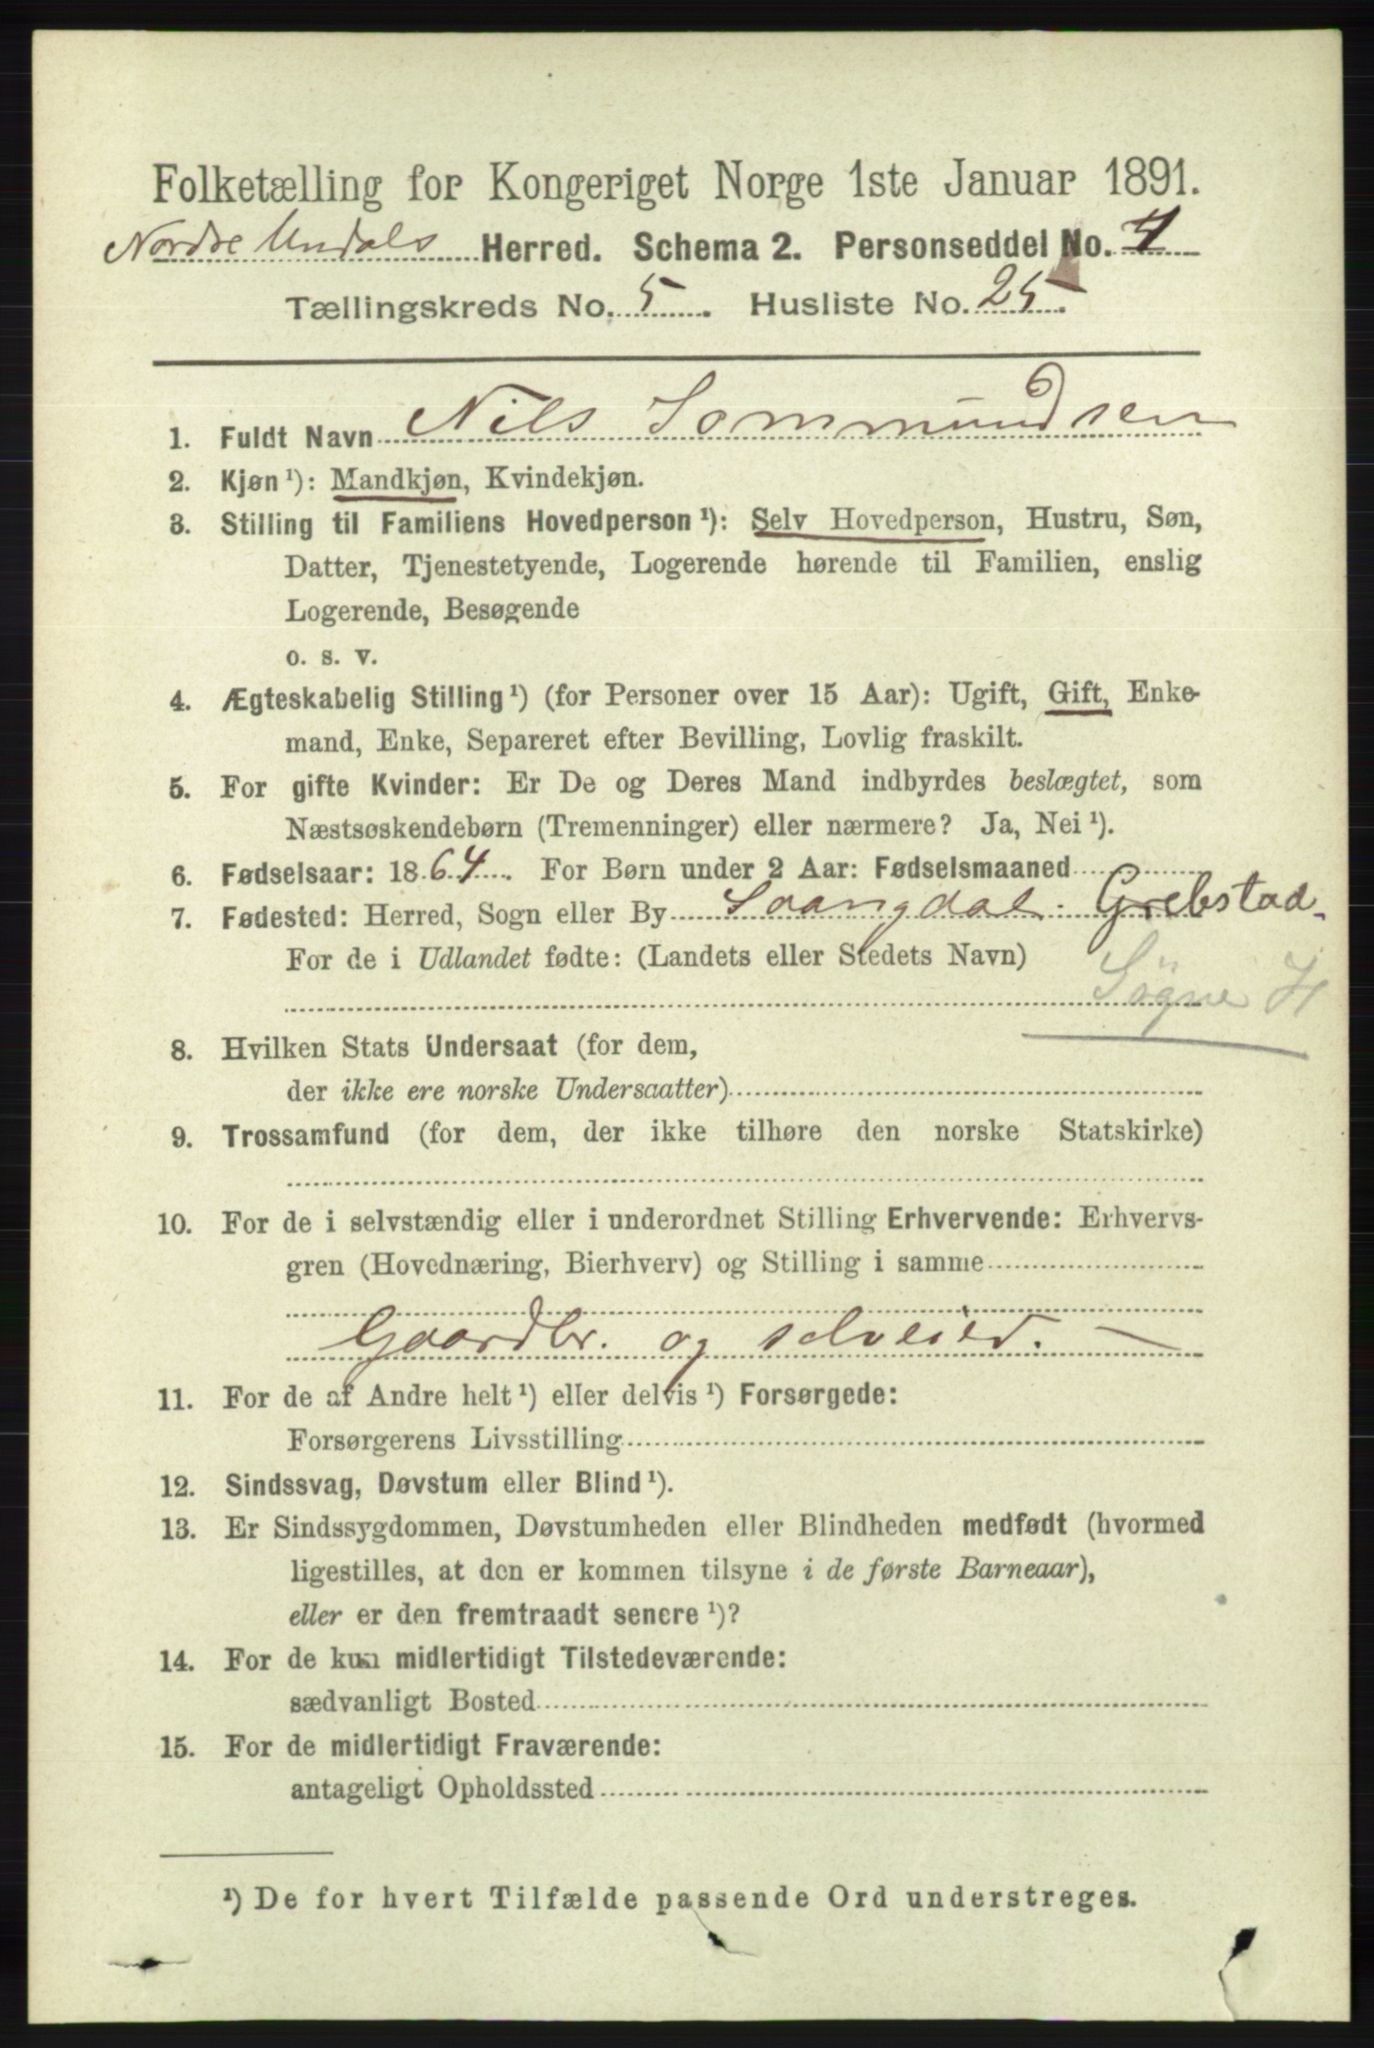 Folketælling for Kongeriget Norge 1ste Januar 1891.
Nordre Undals Herred. Schema 2. Personseddel No. 4
Tællingskreds No. 5. Husliste No. 25.
1. Fuldt Navn Nils Sommundsen
2. Kjøn ¹): Mandkjøn, Kvindekjøn.
3. Stilling til Familiens Hovedperson ¹): Selv Hovedperson, Hustru, Søn,
Datter, Tjenestetyende, Logerende hørende til Familien, enslig
Logerende, Besøgende
o. s. v.
4. Ægteskabelig Stilling ¹) (for Personer over 15 Aar): Ugift, Gift, Enke-
mand, Enke, Separeret efter Bevilling, Lovlig fraskilt.
5. For gifte Kvinder: Er De og Deres Mand indbyrdes beslægtet, som
Næstsøskendebørn (Tremenninger) eller nærmere? Ja, Nei ¹).
6. Fødselsaar: 1864. For Børn under 2 Aar: Fødselsmaaned
7. Fødested: Herred, Sogn eller By Saangdal. Grebstad.
For de i Udlandet fødte: (Landets eller Stedets Navn)
Søgne H
8. Hvilken Stats Undersaat (for dem,
der ikke ere norske Undersaatter)
9. Trossamfund (for dem, der ikke tilhøre den norske Statskirke)
10. For de i selvstændig eller i underordnet Stilling Erhvervende: Erhvervs-
gren (Hovednæring, Bierhverv) og Stilling i samme
Gaardbr. og selveier. —
11. For de af Andre helt ¹) eller delvis ¹) Forsørgede:
Forsørgerens Livsstilling
12. Sindssvag, Døvstum eller Blind ¹).
13. Er Sindssygdommen, Døvstumheden eller Blindheden medfødt (hvormed
ligestilles, at den er kommen tilsyne i de første Barneaar),
eller er den fremtraadt senere ¹)?
14. For de kun midlertidigt Tilstedeværende:
sædvanligt Bosted
15. For de midlertidigt Fraværende:
antageligt Opholdssted
¹) De for hvert Tilfælde passende Ord understreges.